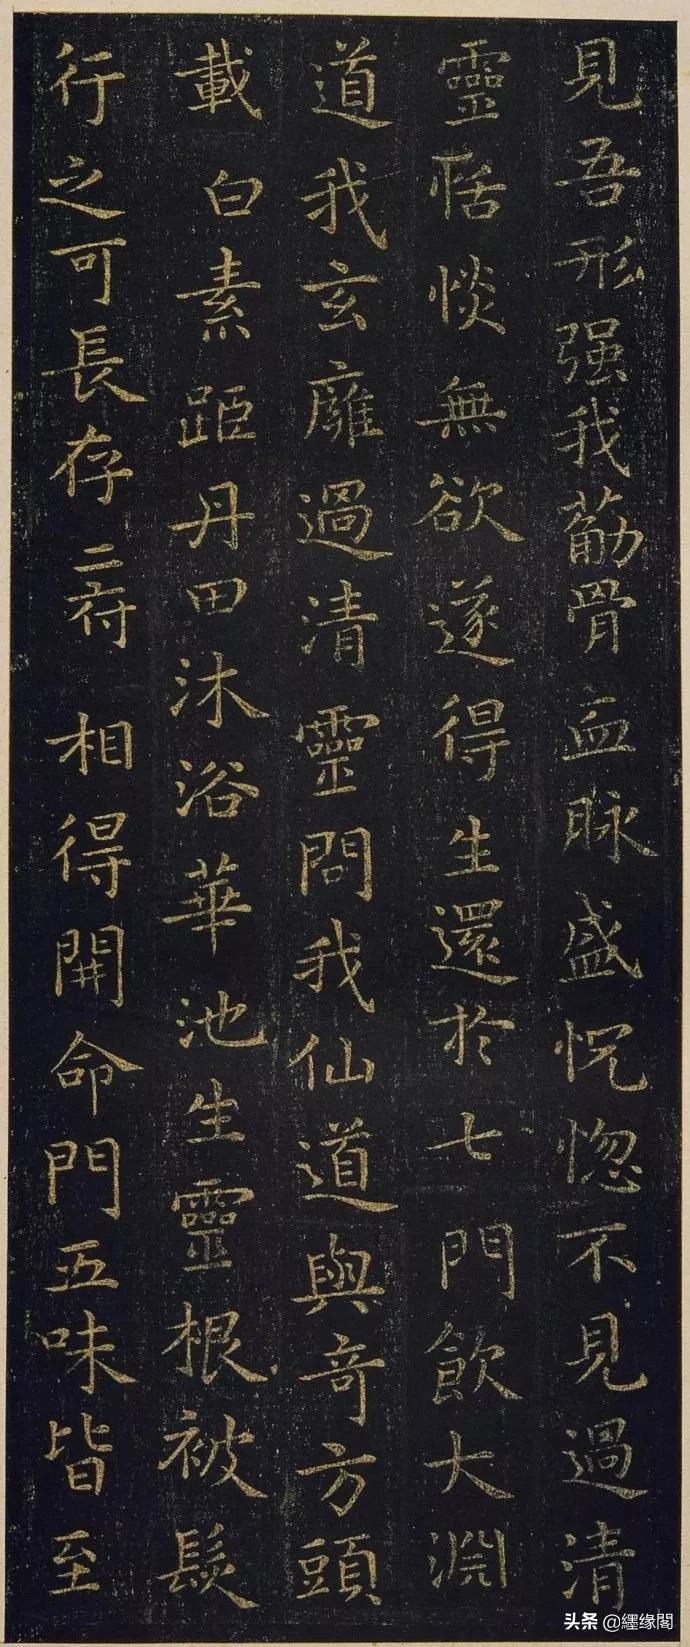 見吾形强我葋骨血脉盛怳惚不見過清
靈恬惔無欲遂得生還於七門飲大淵
道我玄廱過清靈問我仙道與奇方頭
載白素距丹田沐浴華池生靈根被髮
行之可長存二府相得開命門五味皆至
头条 @纆缘閣